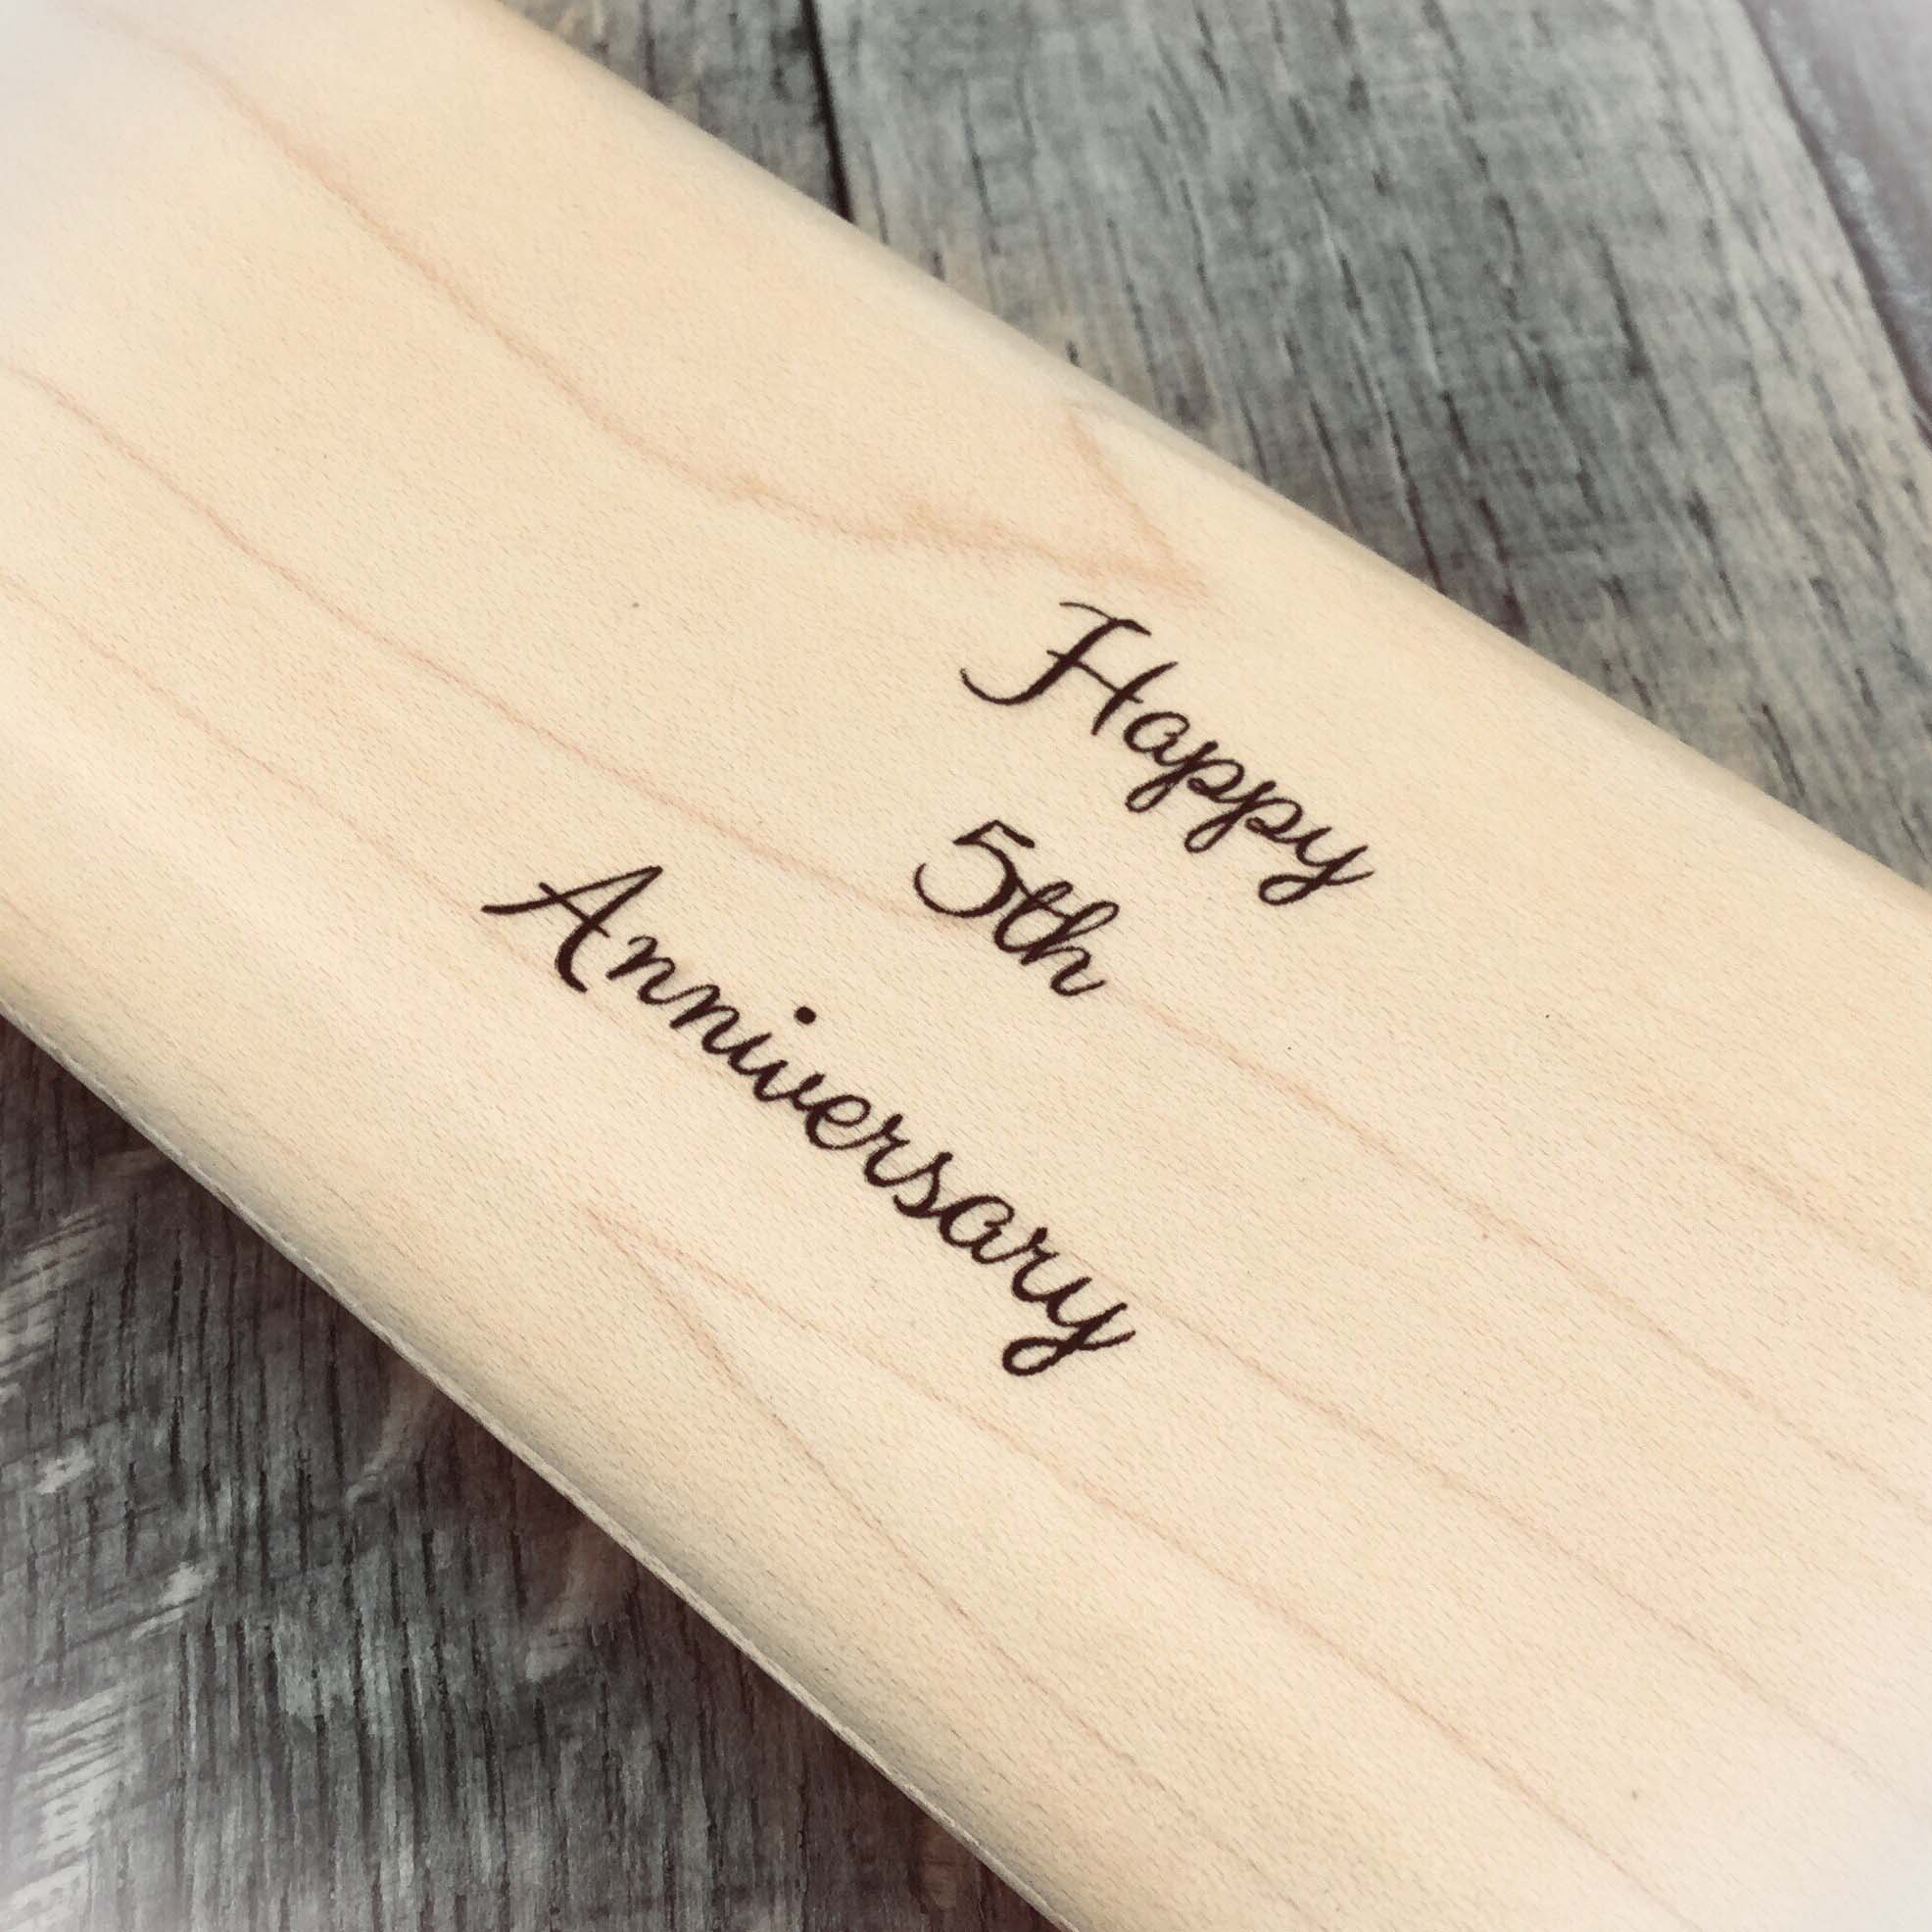 Happy
5th
Anniversary